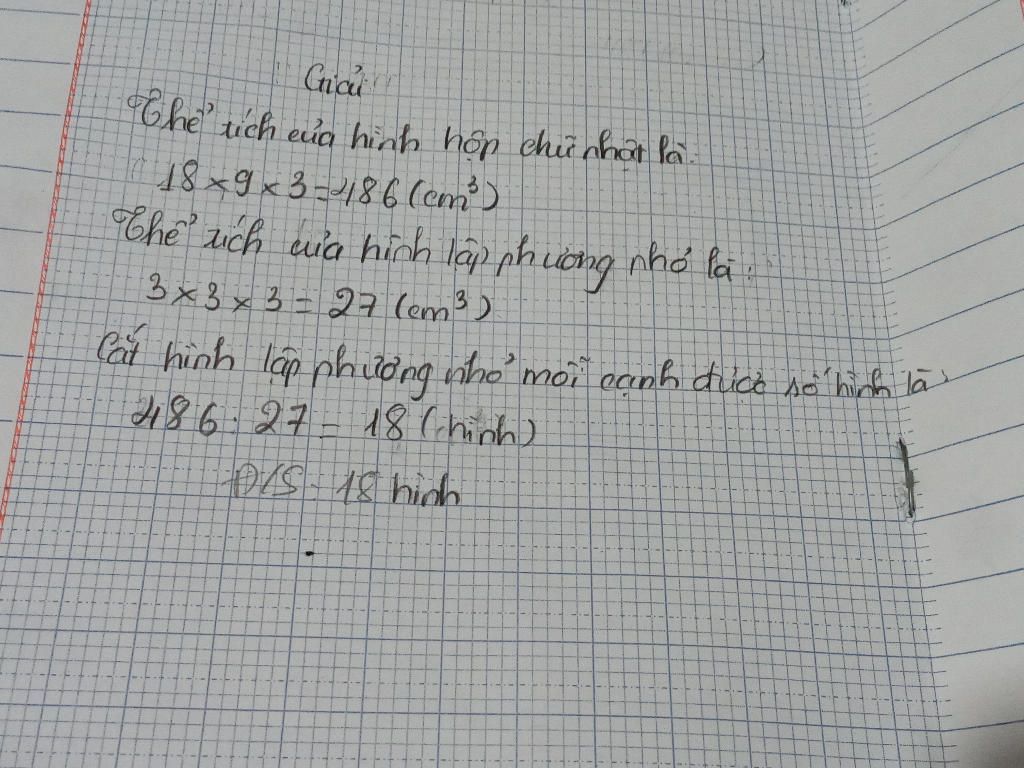 Giải
Thể tích của hình hộp chữ nhật là:
18 x 9 x 3 = 486 (cm³)
Thể tích của hình lập phương nhỏ là:
3 x 3 x 3 = 27 (cm³)
Cắt hình lập phương nhỏ mỗi cạnh được số hình là:
486 : 27 = 18 (hình)
Đ/S: 18 hình